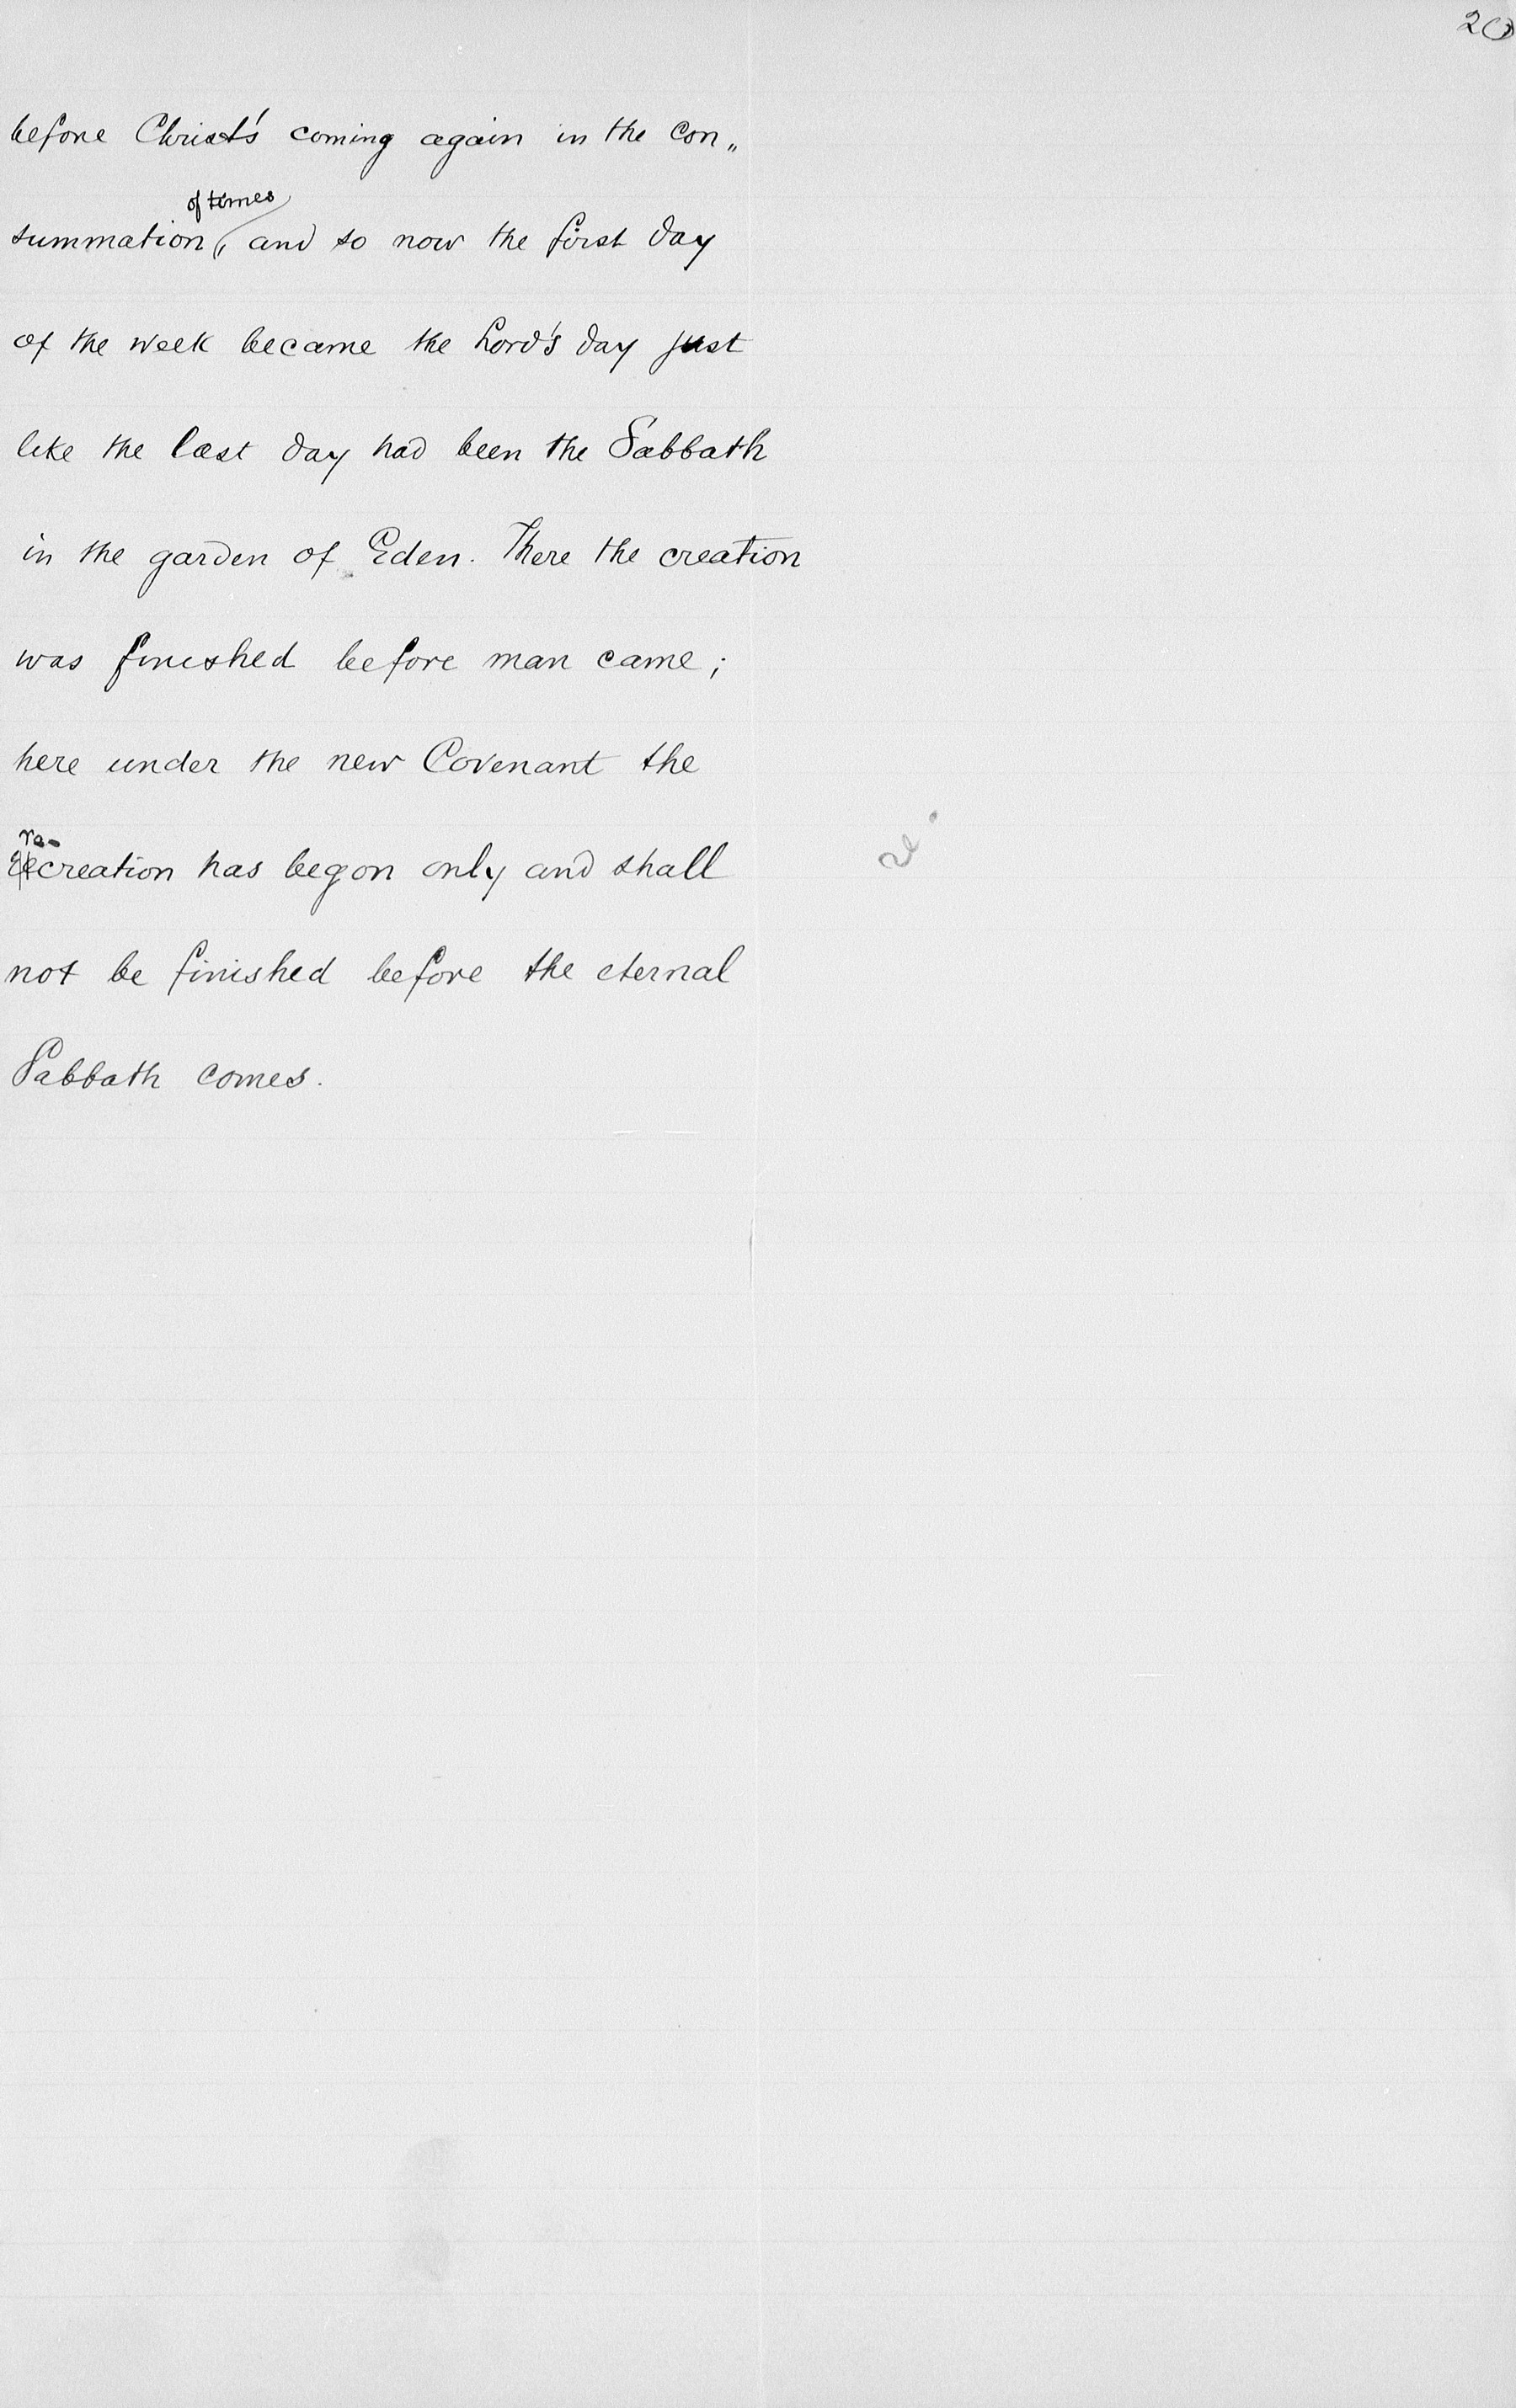 20
before Christ's coming again in the con„
of times
summation, and so now the first day
of the week became the Lord's day just
like the last day had been the Sabbath
in the garden of Eden. There the creation
was finished before man came;
here under the new Covenant the
re-
creation has begon only and shall
not be finished before the eternal
Sabbath comes.